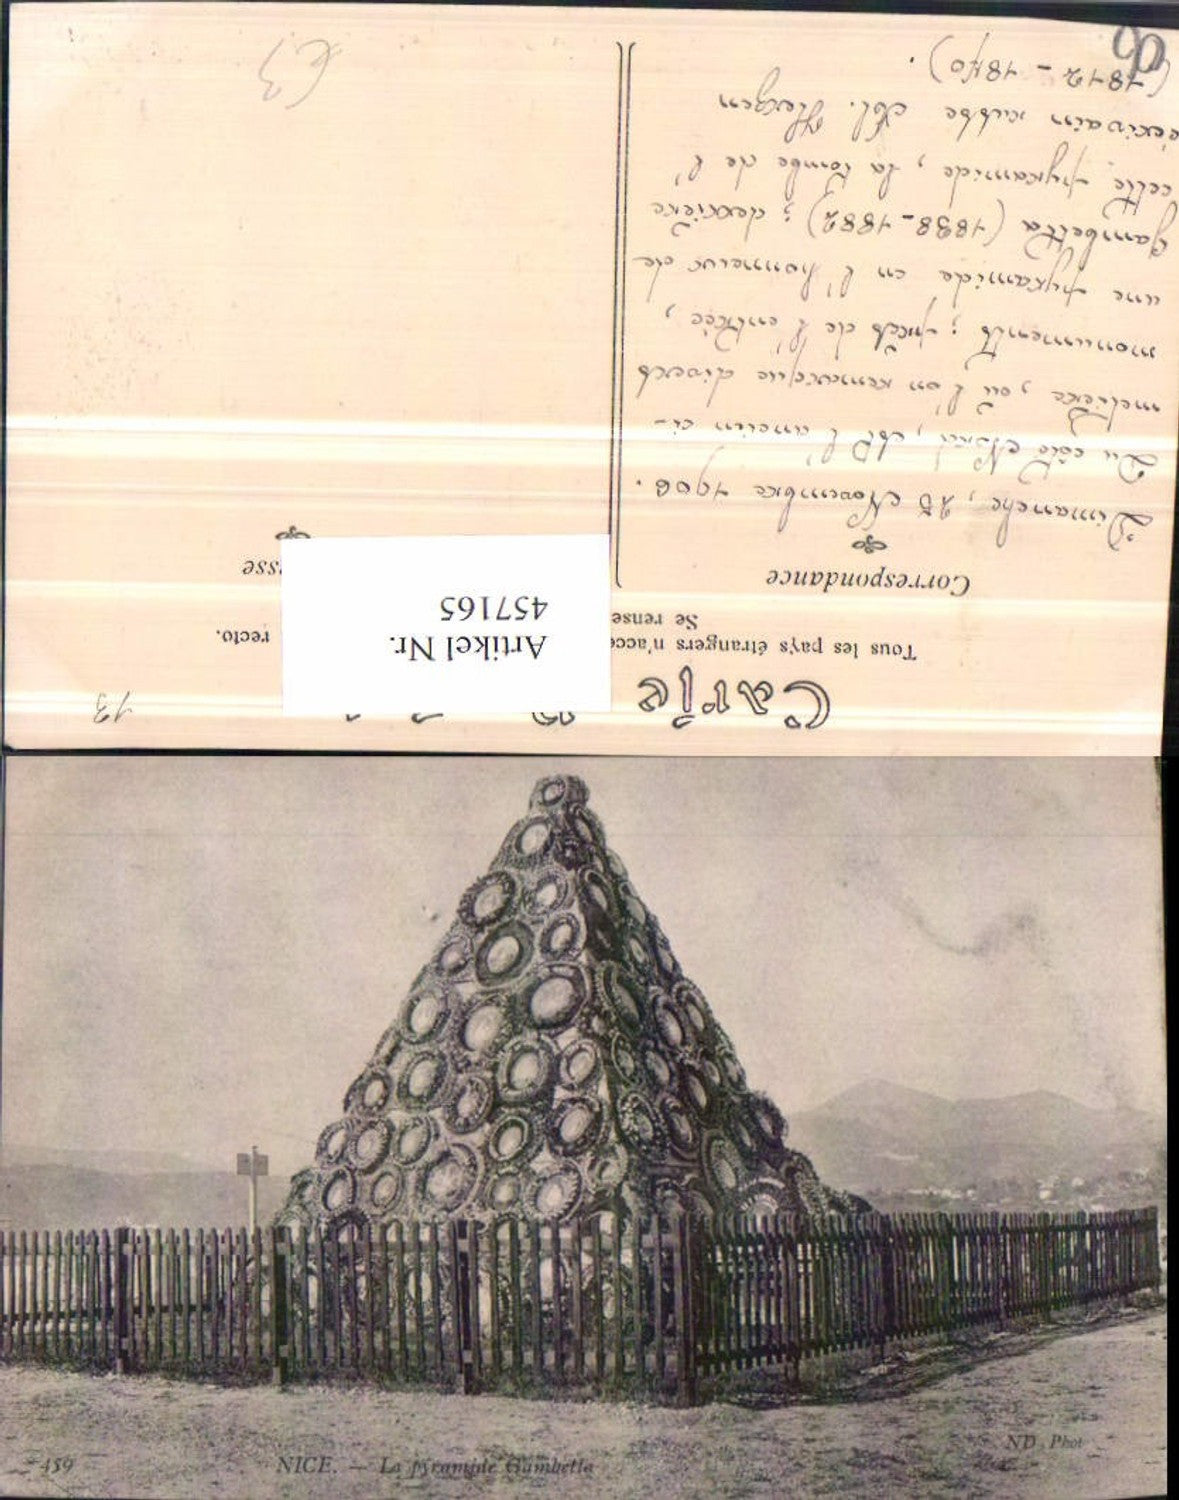 Carte
Tous les pays étrangers
recto.
Se rense
Correspondance
sse
Artikel Nr.
457165
13
Dimanche, 25 Novembre 1906.
Du côté Nord, est l'ancien ci-
metière, où l'on remarque divers
monuments ; près de l'entrée,
une pyramide en l'honneur de
Gambetta (1838-1882) ; derrière
cette pyramide, la tombe de l'
écrivain russe Al. Herzen
(1812-1870).
459
NICE. — La pyramide Gambetta
ND Phot